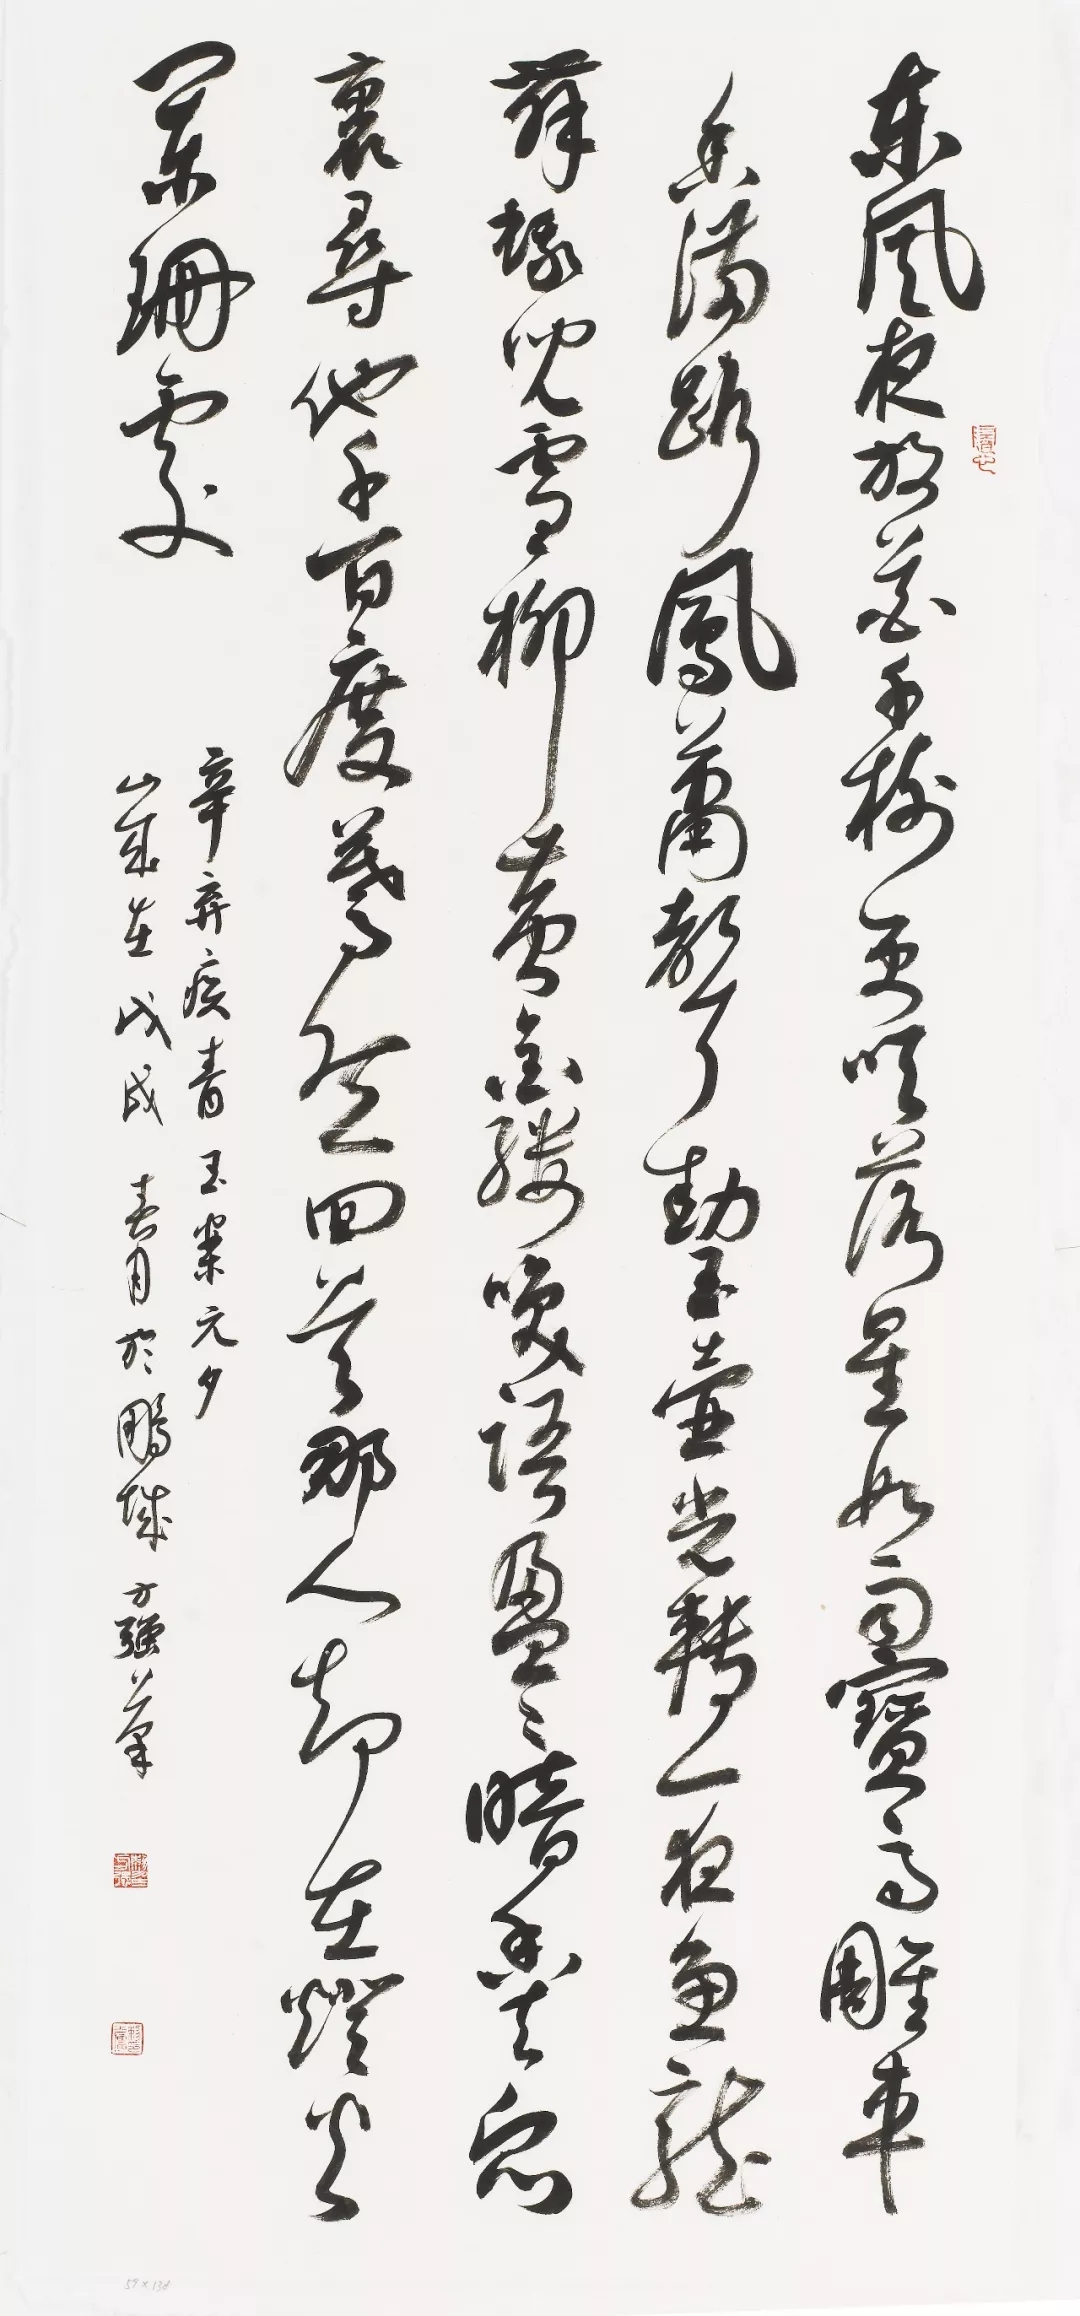 東風夜放花千樹更吹落星如雨寶馬雕車
香滿路鳳簫聲動玉壺光轉一夜魚龍
舞蛾兒雪柳黃金縷咲語盈〻暗香去眾
裏尋他千百度驀然回首那人却在燈火
闌珊處
辛弃疾青玉案元夕
歲在戊戌春月於鵬城方強筆
59×138